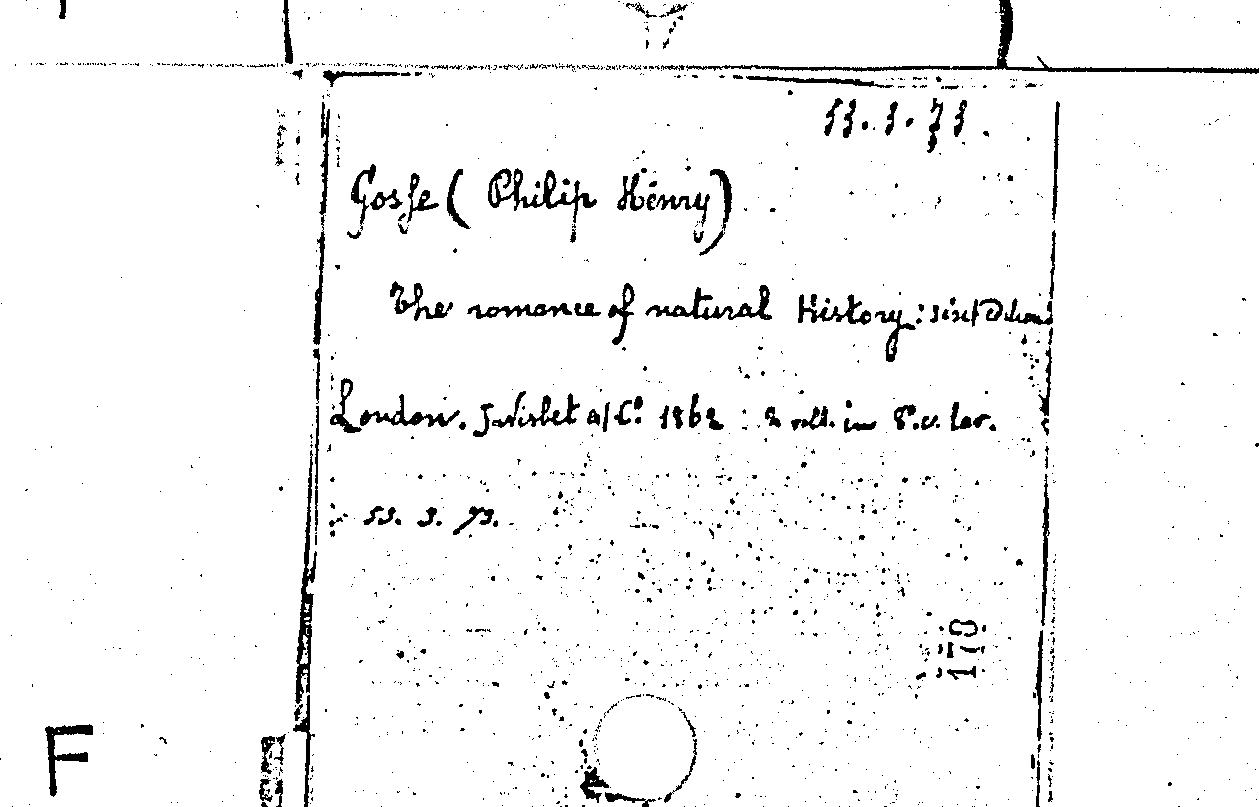 53.3.73.
Gosse (Philip Henry)
The romance of natural History: sixt Edition
London. J. Nisbet a/Cº. 1862 : 2 voll. in 8.º
53. 3. 73.
170
F